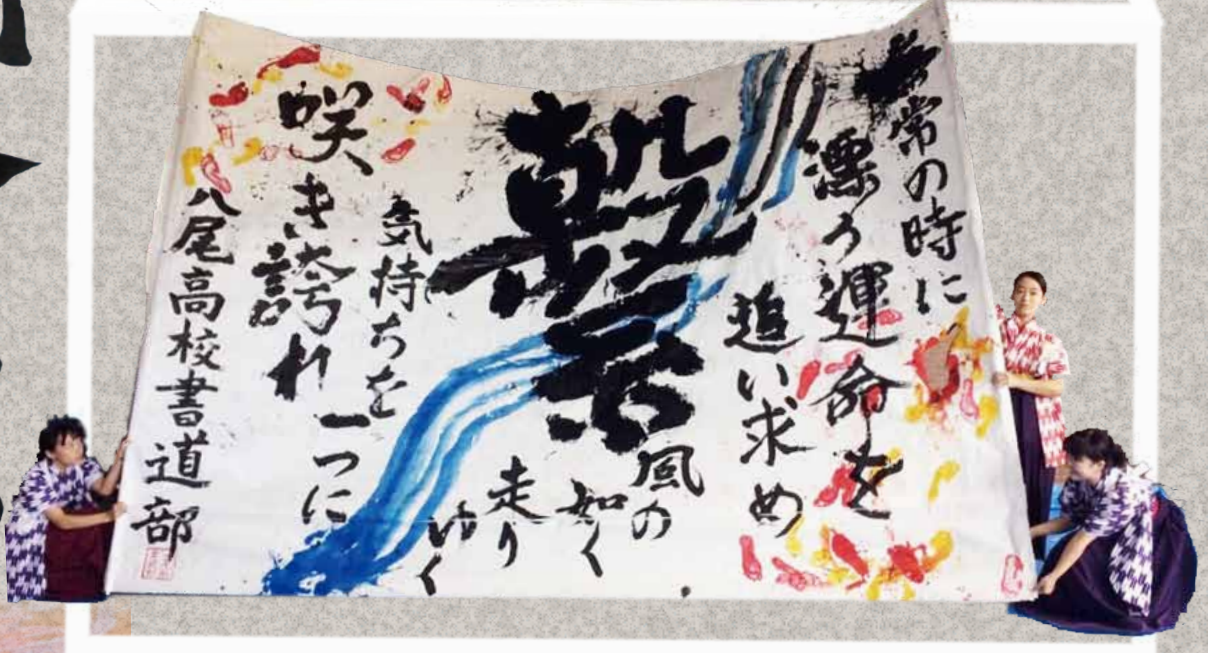 常の時に
漂う運命を
追い求め
風の
如く
走り
ゆく
気持ちを
一つに
咲き誇れ
八尾高校書道部